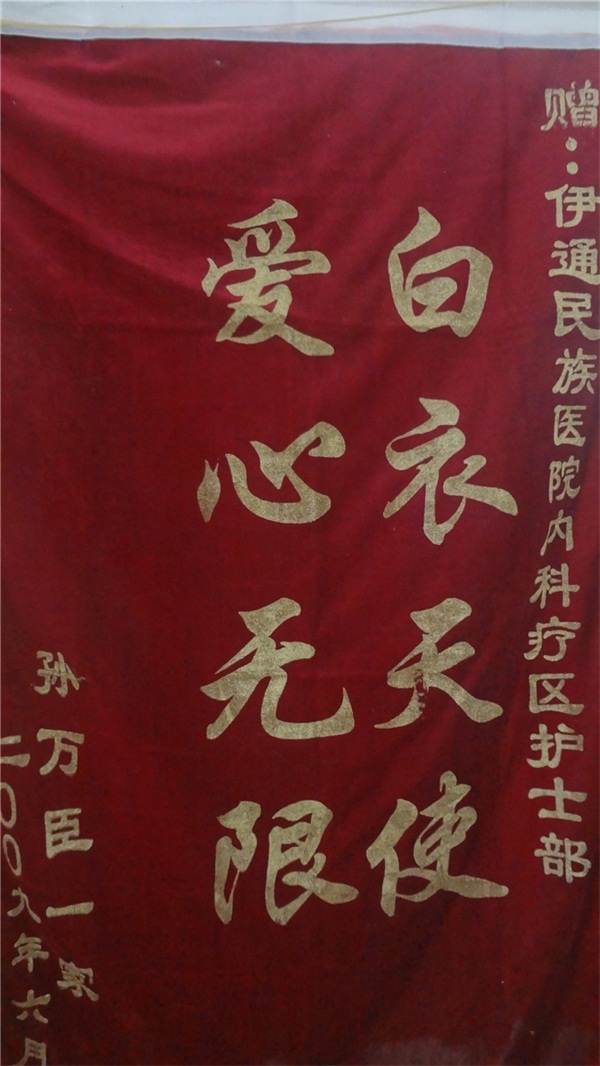 赠：伊通民族医院内科疗区护士部
白衣天使
爱心无限
孙万臣一家
二00九年六月